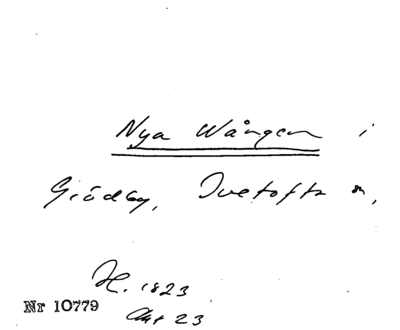 Nya Wången i
Giödby, Ivetofta sn,
H. 1823
Akt 23
Nr 10779